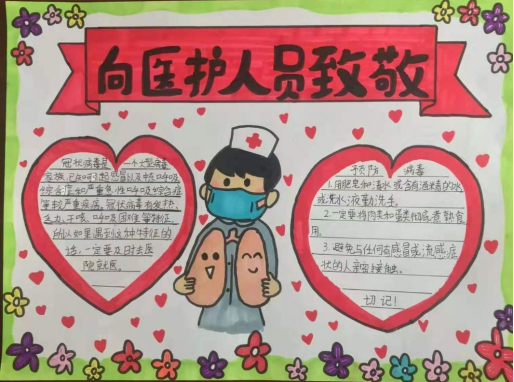 向医护人员致敬
冠状病毒是一个大型病毒
家族,已知可引起感冒以及中东呼吸
综合征和严重急性呼吸综合征
等较严重疾病。冠状病毒有发热、
乏力、干咳、呼吸困难等特征。
所以如果遇到这种特征的
话,一定要及时去医
院就医。
预防 病毒
1.用肥皂和清水或含有酒精的水
或洗水液勤洗手。
2.一定要将肉类和蛋类彻底煮熟食
用。
3.避免与任何有感冒或流感症
状的人亲密接触。
切记!